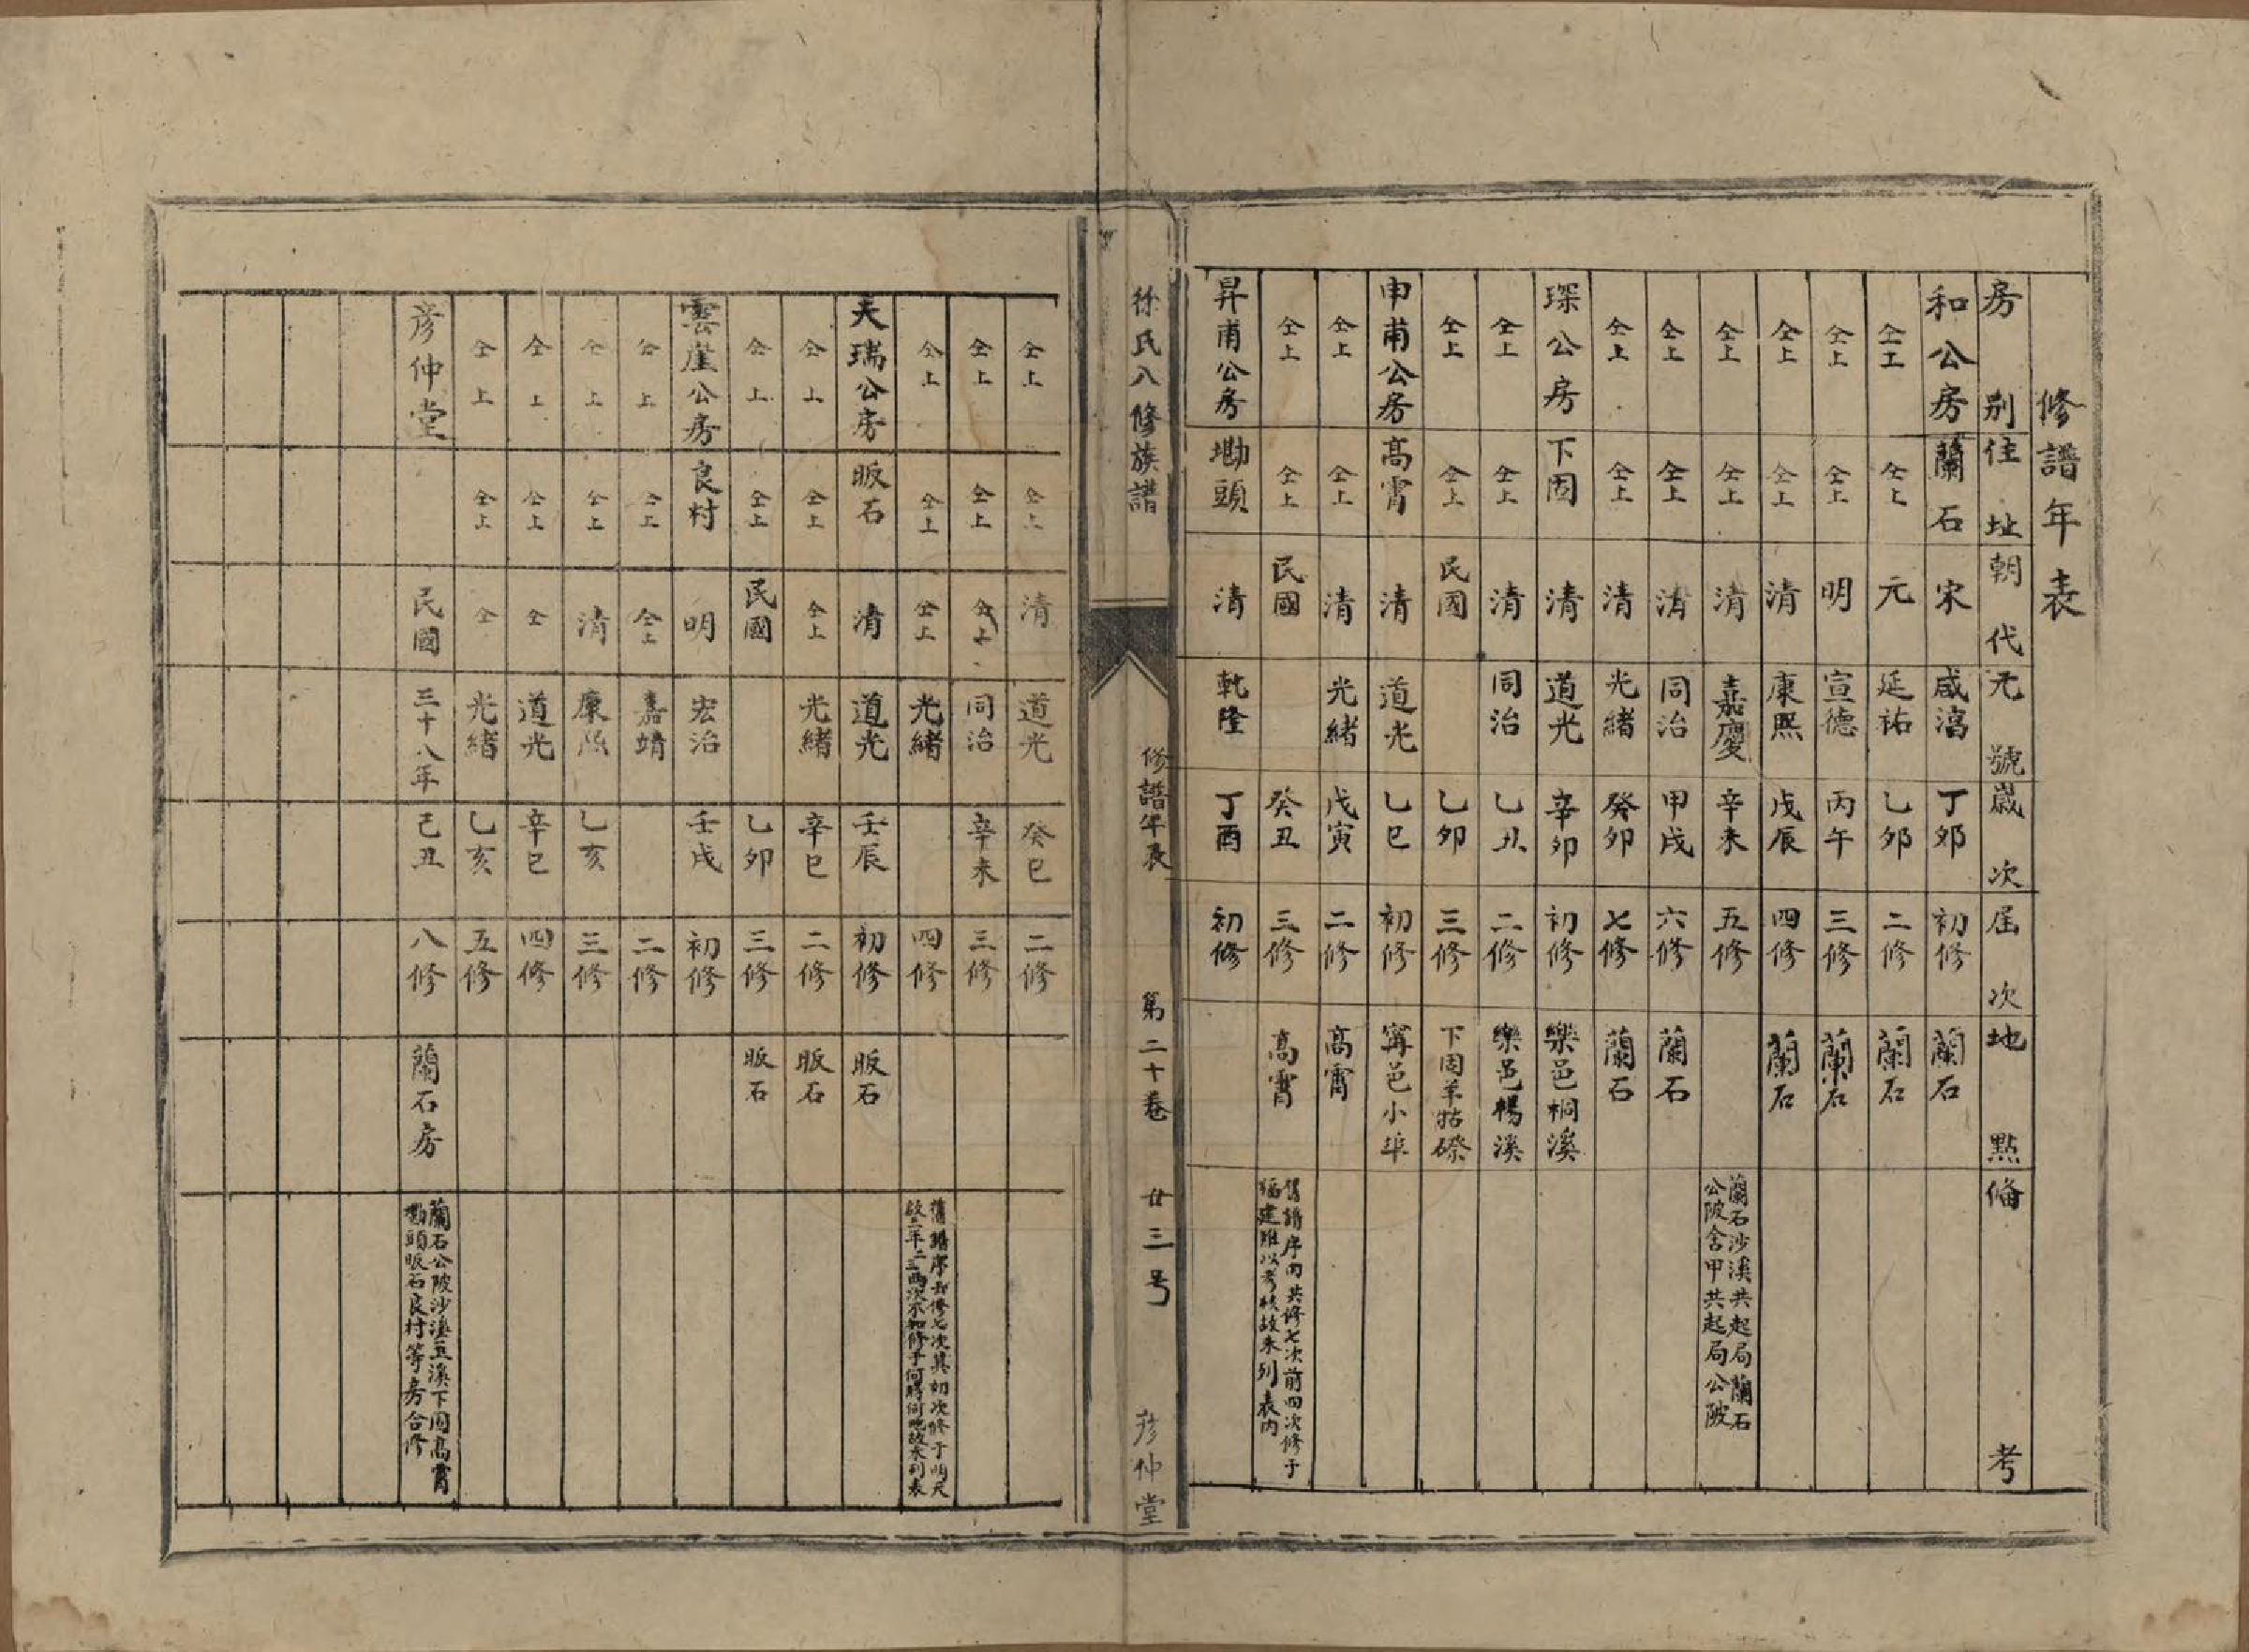 修譜年表
房別 住址 朝代 元號 歲次 屆次 地點 備考
和公房 蘭石 宋 咸淳 丁卯 初修 蘭石
仝上 仝上 元 延祐 乙卯 二修 蘭石
仝上 仝上 明 宣德 丙午 三修 蘭石
仝上 仝上 清 康熙 戊辰 四修 蘭石
仝上 仝上 清 嘉慶 辛未 五修 蘭石沙溪共起局蘭石
公陂舍甲共起局公陂
仝上 仝上 清 同治 甲戌 六修 蘭石
仝上 仝上 清 光緒 癸卯 七修 蘭石
琛公房 下固 清 道光 辛卯 初修 樂邑桐溪
仝上 仝上 清 同治 乙丑 二修 樂邑楊溪
仝上 仝上 民國 乙卯 三修 下固羊牯磜
申甫公房 高霄 清 道光 乙巳 初修 寗邑小埠
仝上 仝上 清 光緒 戊寅 二修 高霄
仝上 仝上 民國 癸丑 三修 高霄 舊譜序内共修七次前四次修于
福建難以考核故未列表内
昇甫公房 墈頭 清 乹隆 丁酉 初修
徐氏八修族譜 修譜年表 第二十卷 廿三号 彦仲堂
仝上 仝上 清 道光 癸巳 二修
仝上 仝上 仝上 同治 辛未 三修
仝上 仝上 仝上 光緒 四修 舊譜序云修七次其初次修于明天
啟二年二三两次不知修于何時何地故未列表
天瑞公房 昄石 清 道光 壬辰 初修 昄石
仝上 仝上 仝上 光緒 辛巳 二修 昄石
仝上 仝上 民國 乙卯 三修 昄石
雲崖公房 良村 明 宏治 壬戌 初修
仝上 仝上 仝上 嘉靖 二修
仝上 仝上 清 康熙 乙亥 三修
仝上 仝上 仝 道光 辛巳 四修
仝上 仝上 仝 光緒 乙亥 五修
彦仲堂 民國 三十八年 己丑 八修 蘭石房 蘭石公陂沙溪互溪下固高霄
墈頭昄石良村等房合修